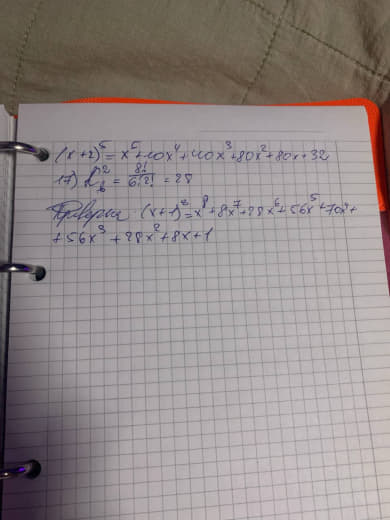 (x+2)⁵ = x⁵+10x⁴+40x³+80x²+80x+32
17) C₈² = 8!/6!2! = 28
Проверка (x+1)⁸ = x⁸+8x⁷+28x⁶+56x⁵+70x⁴+
+56x³+28x²+8x+1